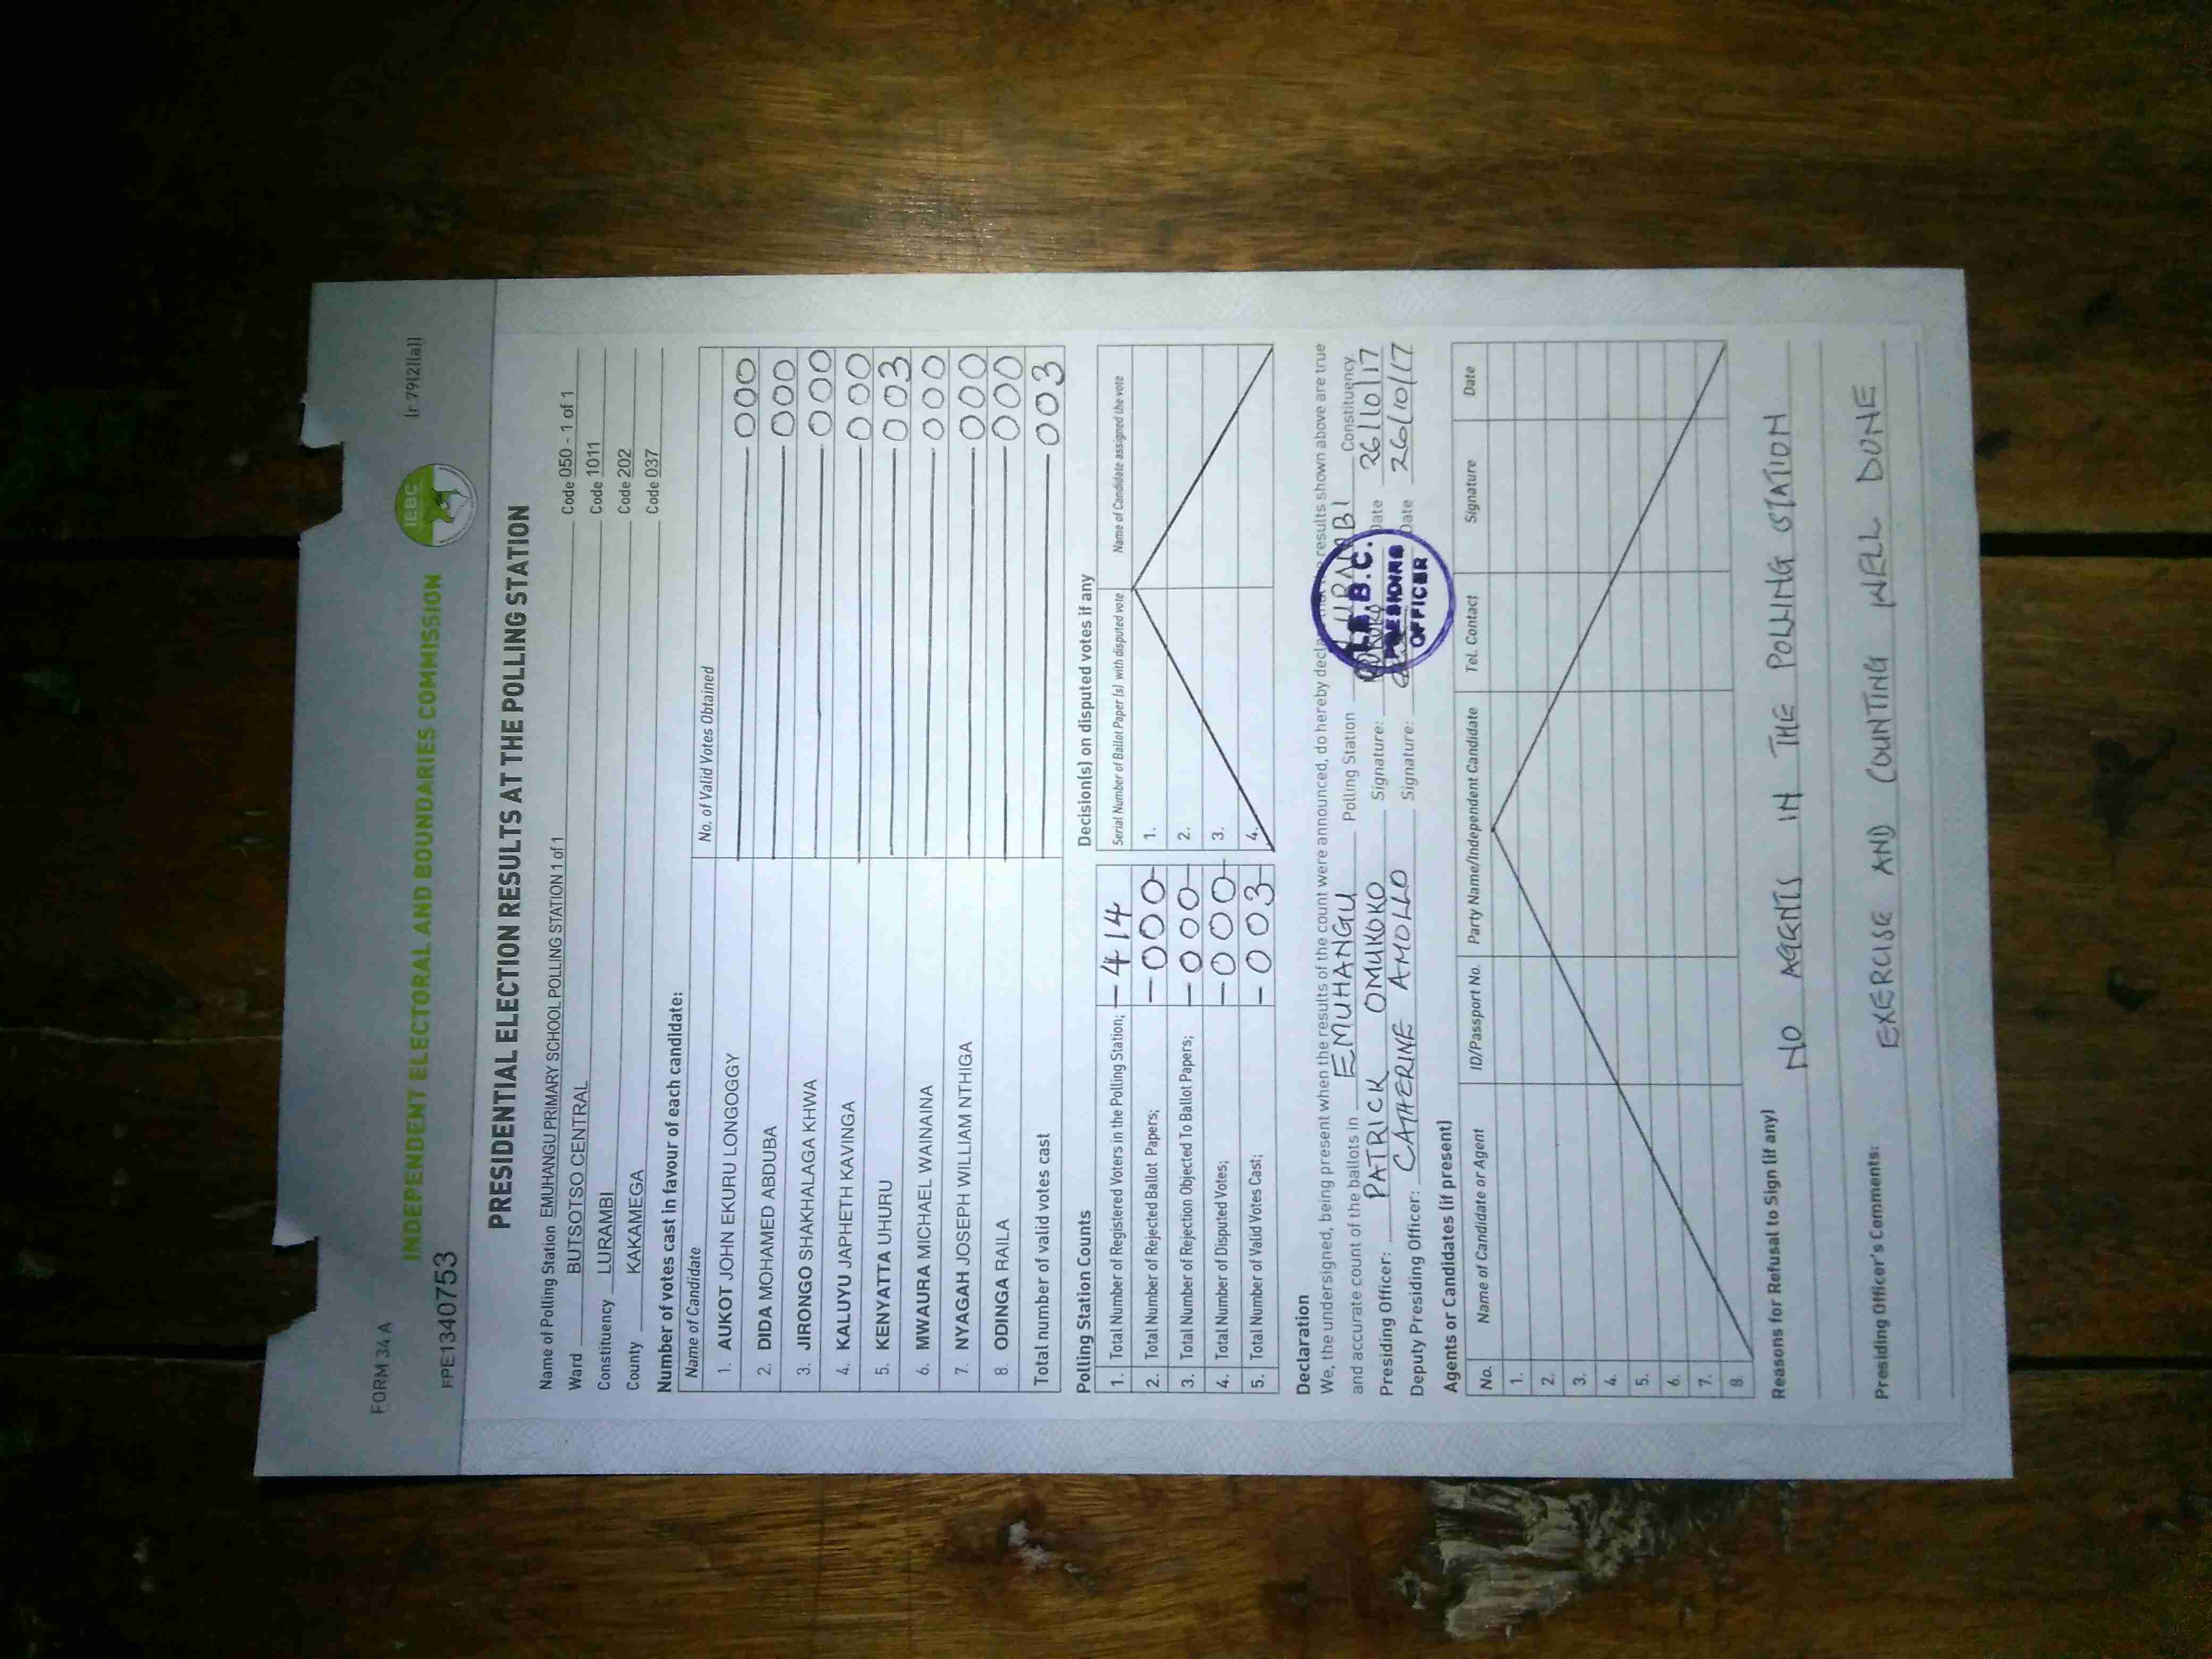 FORM 34 A
(r 79(2)(a))
IEBC
INDEPENDENT ELECTORAL AND BOUNDARIES COMMISSION
FPE1340753
PRESIDENTIAL ELECTION RESULTS AT THE POLLING STATION
Name of Polling Station EMUHANGU PRIMARY SCHOOL POLLING STATION 1 of 1 Code 050 - 1 of 1
Ward BUTSOTSO CENTRAL Code 1011
Constituency LURAMBI Code 202
County KAKAMEGA Code 037
Number of votes cast in favour of each candidate:
Name of Candidate No. of Valid Votes Obtained
1. AUKOT JOHN EKURU LONGOGGY 000
2. DIDA MOHAMED ABDUBA 000
3. JIRONGO SHAKHALAGA KHWA 000
4. KALUYU JAPHETH KAVINGA 000
5. KENYATTA UHURU 003
6. MWAURA MICHAEL WAINAINA 000
7. NYAGAH JOSEPH WILLIAM NTHIGA 000
8. ODINGA RAILA 000
Total number of valid votes cast 003
Polling Station Counts
1. Total Number of Registered Voters in the Polling Station; - 414
2. Total Number of Rejected Ballot Papers; - 000
3. Total Number of Rejection Objected To Ballot Papers; - 000
4. Total Number of Disputed Votes; - 000
5. Total Number of Valid Votes Cast; - 003
Decision(s) on disputed votes if any
Serial Number of Ballot Paper (s) with disputed vote Name of Candidate assigned the vote
1.
2.
3.
4.
Declaration
We, the undersigned, being present when the results of the count were announced, do hereby declare that results shown above are true
and accurate count of the ballots in EMUHANGU Polling Station LURAMBI Constituency
Presiding Officer: PATRICK OMUKOKO Signature: Date 26/10/17
Deputy Presiding Officer: CATHERINE AMOLLO Signature: Date 26/10/17
I.E.B.C.
PRESIDING
OFFICER
Agents or Candidates (if present)
No. Name of Candidate or Agent ID/Passport No. Party Name/Independent Candidate Tel. Contact Signature Date
1.
2.
3.
4.
5.
6.
7.
8.
Reasons for Refusal to Sign (if any)
NO AGENTS IN THE POLLING STATION
Presiding Officer's Comments:
EXERCISE AND COUNTING WELL DONE